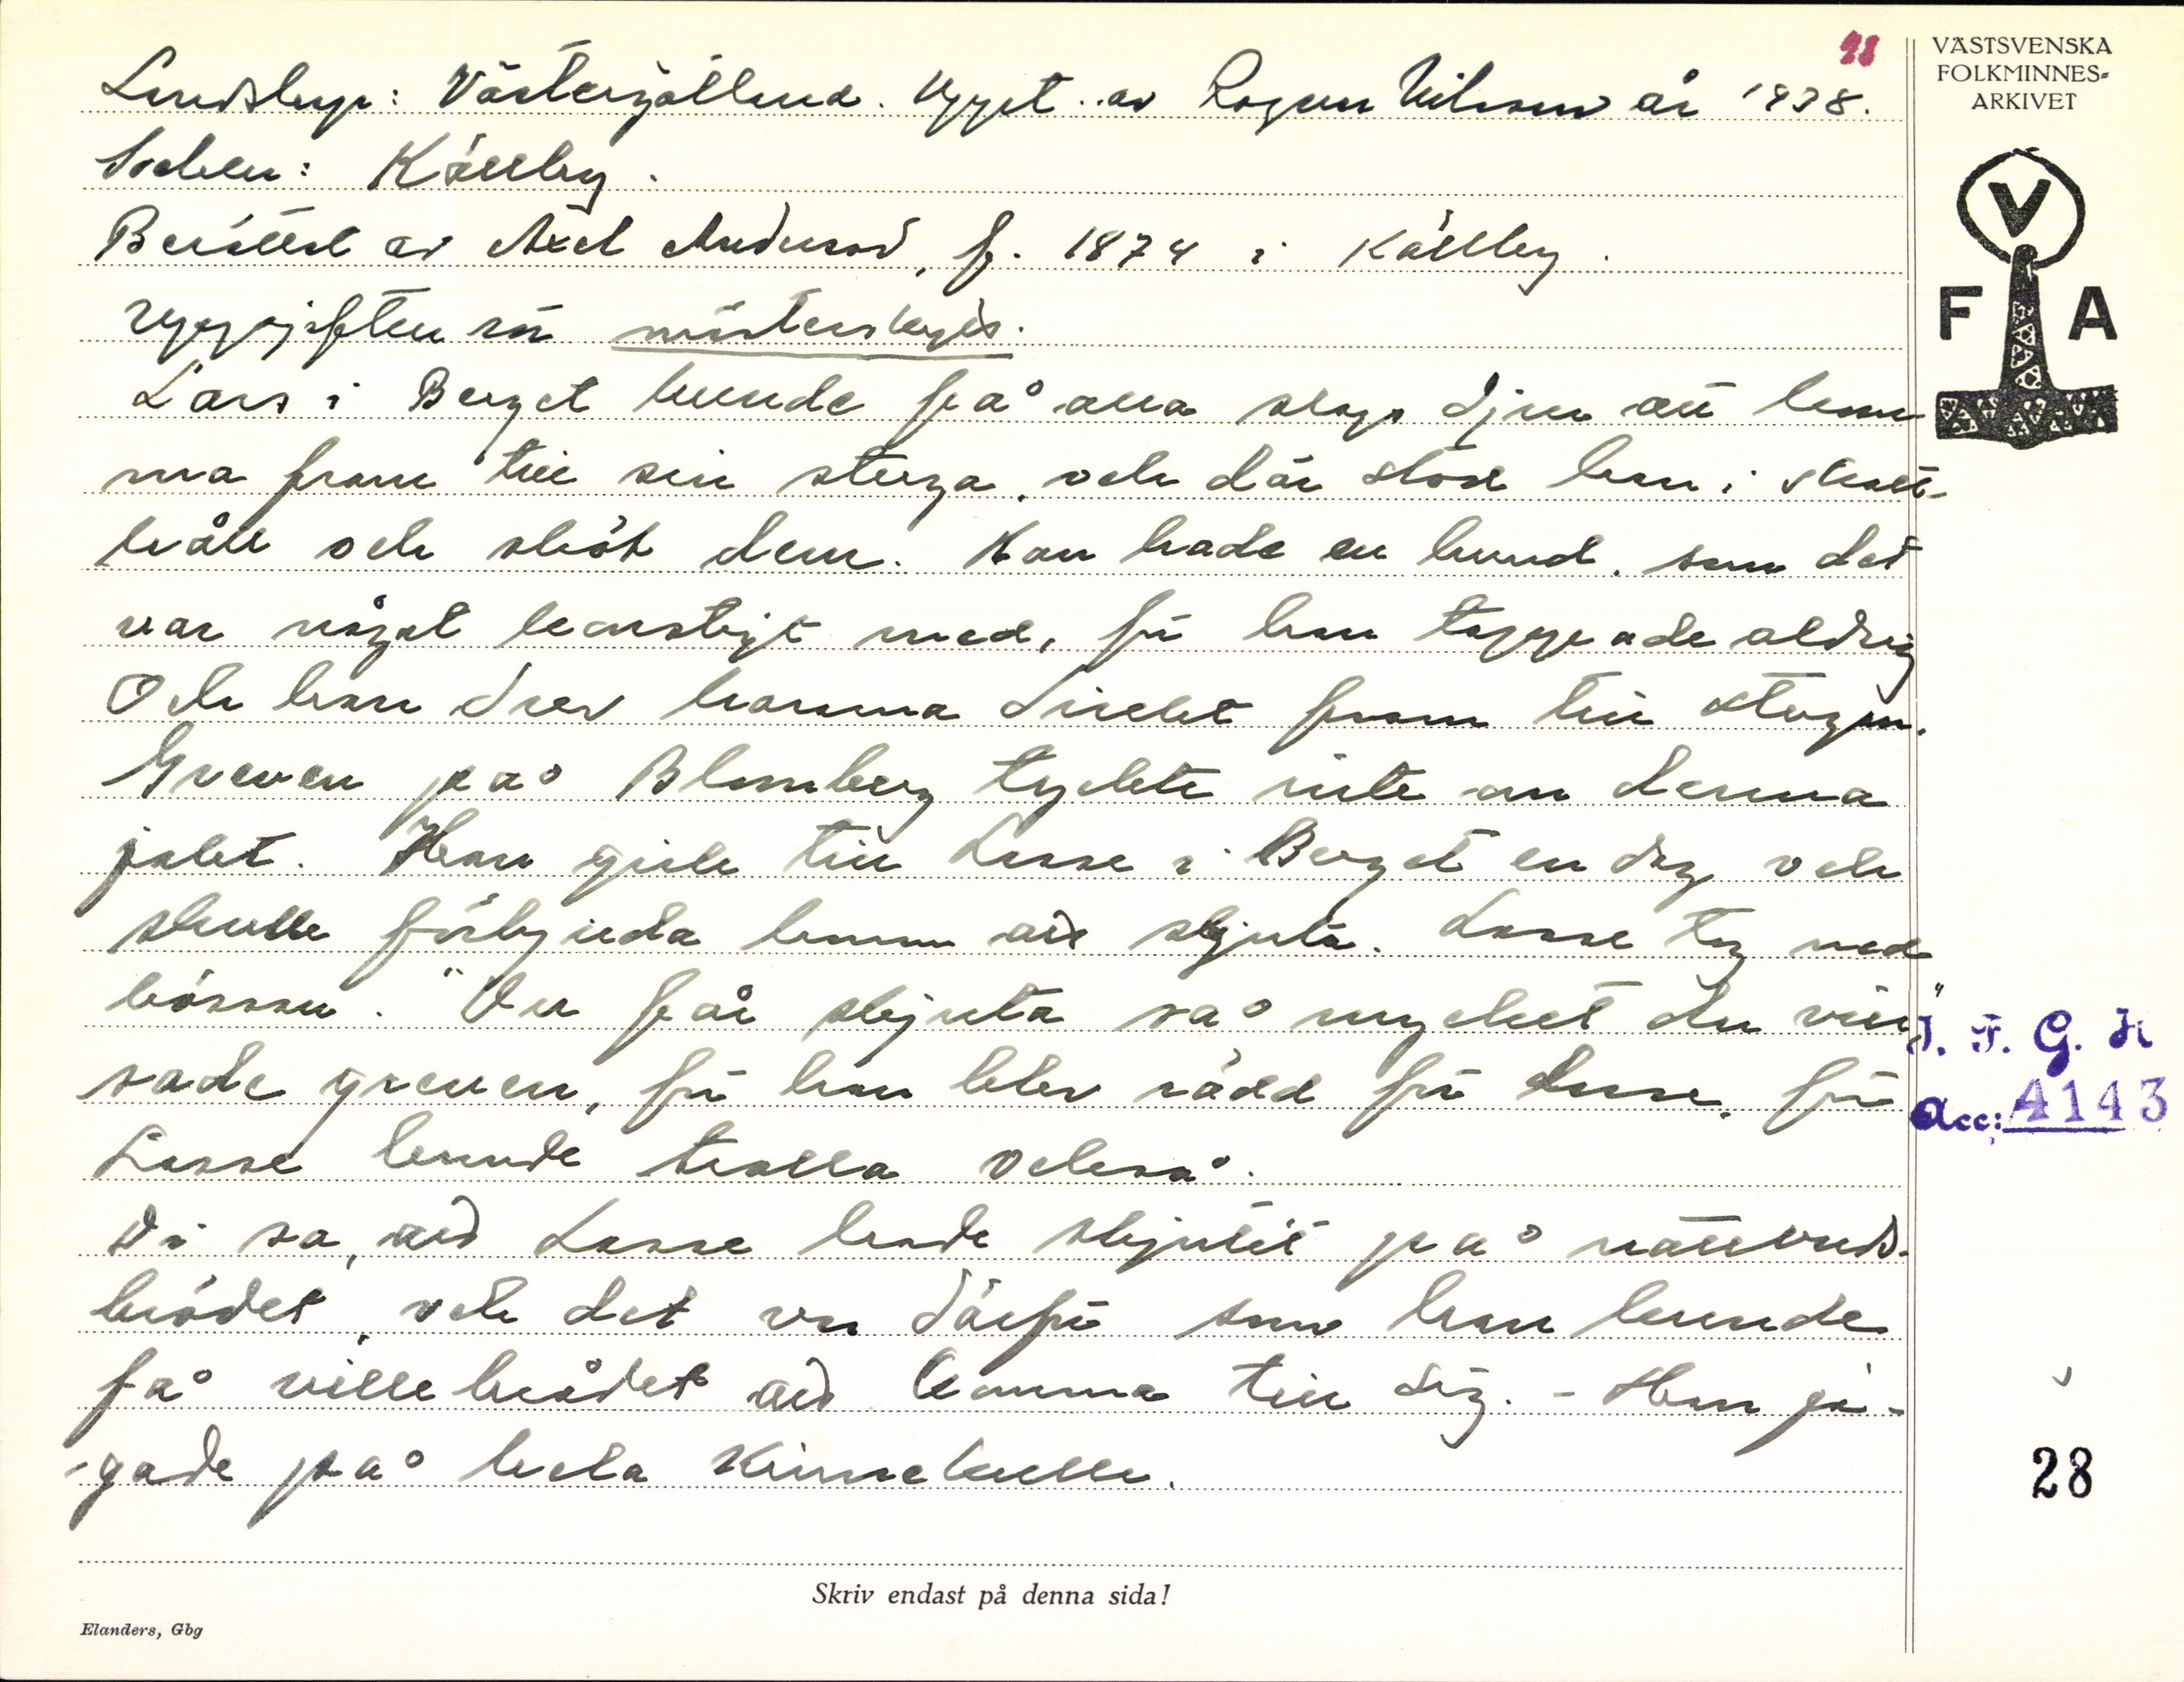 28
Landskap: Västergötland. Uppt. av Ragnar Nilsson år 1938.
Socken: Källby.
Berättat av Axel Andersson, f. 1874 i Källby.
Uppgiften är
Lars i Berget kunde få alla slags djur att kom
ma fram till sin stuga, och där stod han i skott-
håll och sköt dem. Han hade en hund, som det
var något konstigt med, för han tappade aldrig
Och han drev hararna direkt fram till stugan.
Greven på Blomberg tyckte inte om denna
jakt. Han gick till Lasse i Berget en dag och
skulle förbjuda honom att skjuta. Lasse tog ned
bössan. "Du får skjuta så mycket du vill,"
sade greven, för han blev rädd för Lasse, för
Lasse kunde trolla också.
Di sa, att Lasse hade skjutit på nattvards-
brödet, och det var därför som han kunde
få villebrådet att komma till sig. - Han ja-
gade på hela Kinnekulle.
Skriv endast på denna sida!
Elanders, Gbg
VÄSTSVENSKA
FOLKMINNES-
ARKIVET
V
F A
I. F. G. H
Acc: 4143
28